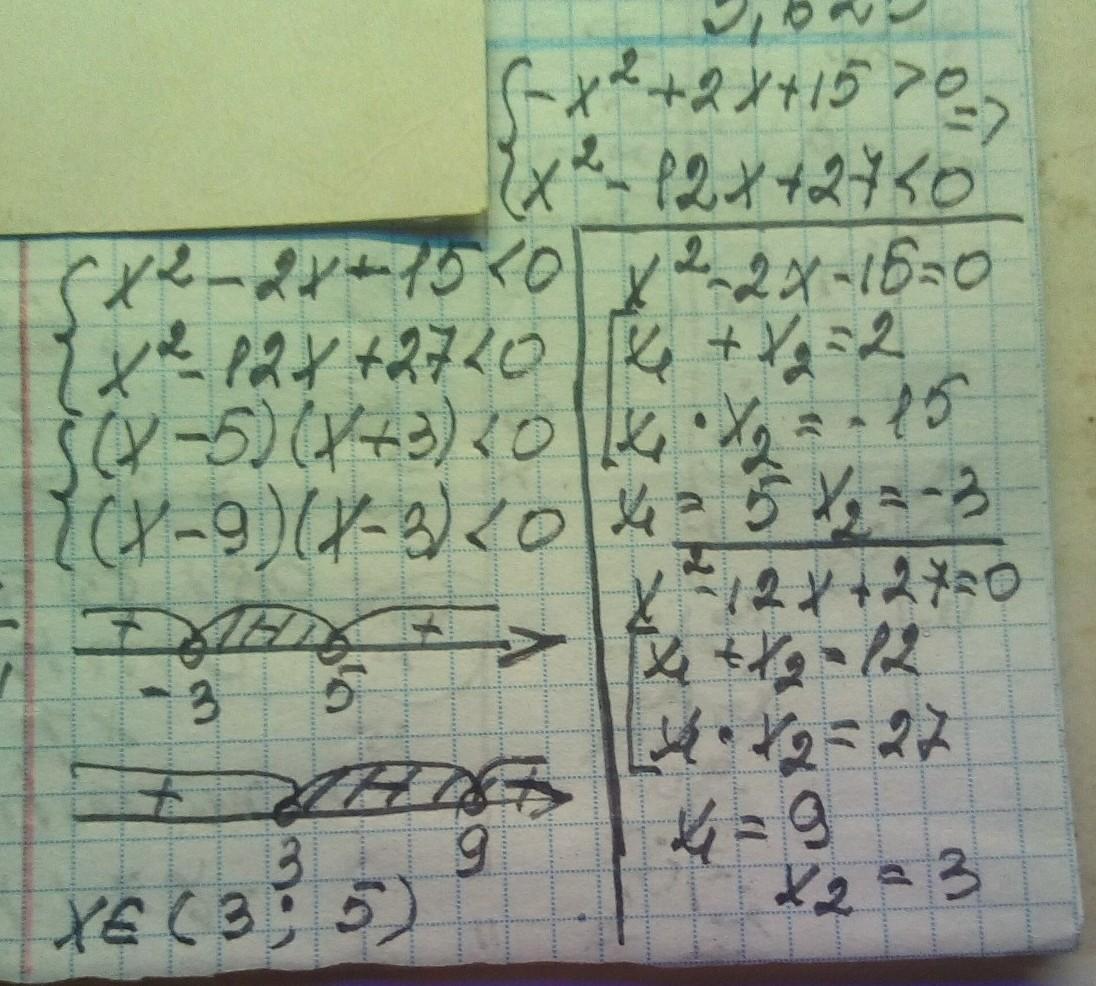 -x² + 2x + 15 > 0 =>
x² - 12x + 27 < 0
x² - 2x - 15 < 0
x² - 12x + 27 < 0
(x - 5)(x + 3) < 0
(x - 9)(x - 3) < 0
+ +
-3 5
+ +
3 9
x ∈ (3; 5)
x² - 2x - 15 = 0
x₁ + x₂ = 2
x₁ · x₂ = -15
x₁ = 5 x₂ = -3
x² - 12x + 27 = 0
x₁ + x₂ = 12
x₁ · x₂ = 27
x₁ = 9
x₂ = 3